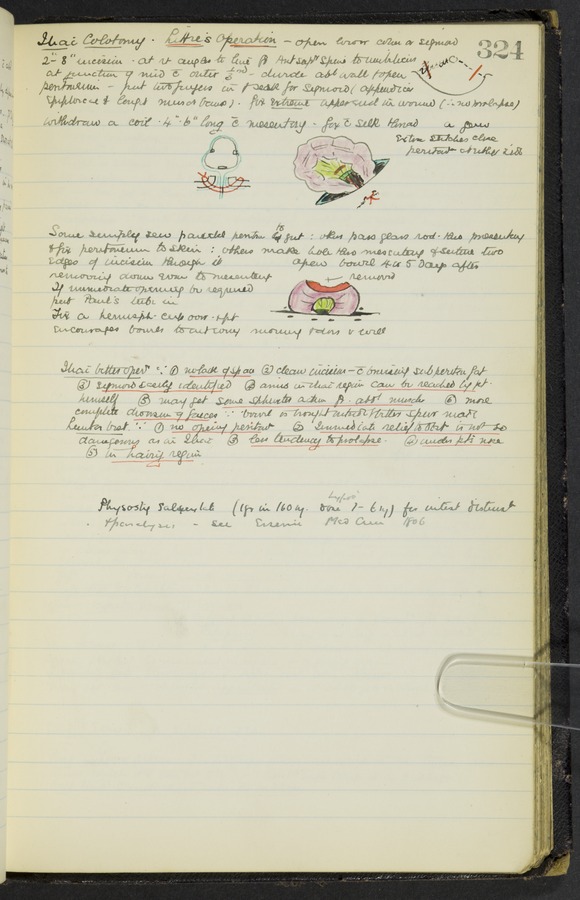 324
Iliac Colotomy. Littré's Operation - open lower colon or sigmoid
2"-3" incision - at rt angles to line fr Ant Sup Spine to umbilicus
at junction of mid & outer - divide abd wall & open
peritoneum - put two fingers in & seek for Sigmoid (appendices
Epiploicae & longt muscr bands). fix extreme upper end in wound (∴ no prolapse)
withdraw a coil 4"-6" long c̄ mesentery - fix c̄ silk thread a few
Extra stitches close
peritont either side
Some simply sew parietal peritm to gut : others pass glass rod thro mesentery
& fix peritoneum to skin : others make hole thro mesentery & suture two
edges of incision through it open bowel 4 or 5 days after
removing down even to mesentery
removed
If immediate opening be required
put Paul's tube in
Fix a hemisph. cup over
Encourage bowels to act every morning & dors v well
Iliac better opern ∵ ① no lack of space ② clean incision - c̄ omitting subperiton fat
③ sigmoid easily identified ④ anus in iliac region can be reached by pt.
himself ⑤ may get some sphincter action fr. abdl muscles ⑥ more
complete diversion of faeces ∵ bowel is brought outside & better spur made
Lumbar best ∵ ① no opening peritont ② Immediate relief to obst is not so
dangerous as in Iliac ③ less tendency to prolapse. ④ under pts nose
⑤ in hairy region
Physostig Salicylate (1gr in 160 m. Dose 2-6 m) for intest distenst
hypod
& paralysis - see Med Ann 1906